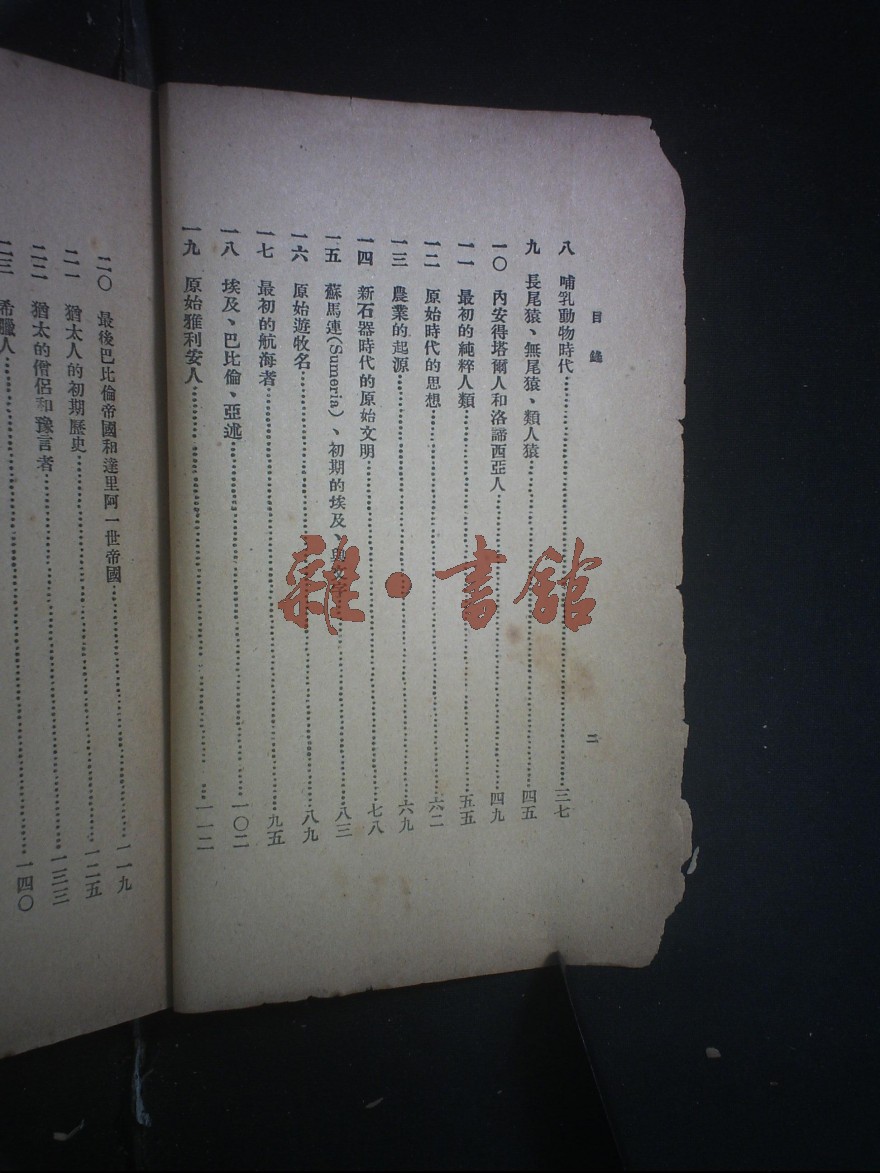 目錄
二
八 哺乳動物時代……三七
九 長尾猿、無尾猿、類人猿……四五
一〇 內安得塔爾人和洛諦西亞人……四九
一一 最初的純粹人類……五五
一二 原始時代的思想……六二
一三 農業的起源……六九
一四 新石器時代的原始文明……七八
一五 蘇馬連(Sumeria)、初期的埃及、與文字……八三
一六 原始遊牧名……八九
一七 最初的航海者……九五
一八 埃及、巴比倫、亞述……一〇二
一九 原始雅利安人……一一二
二〇 最後巴比倫帝國和達里阿一世帝國……一一九
二一 猶太人的初期歷史……一二五
二二 猶太的僧侶和豫言者……一三三
二三 希臘人……一四〇
雜·書館